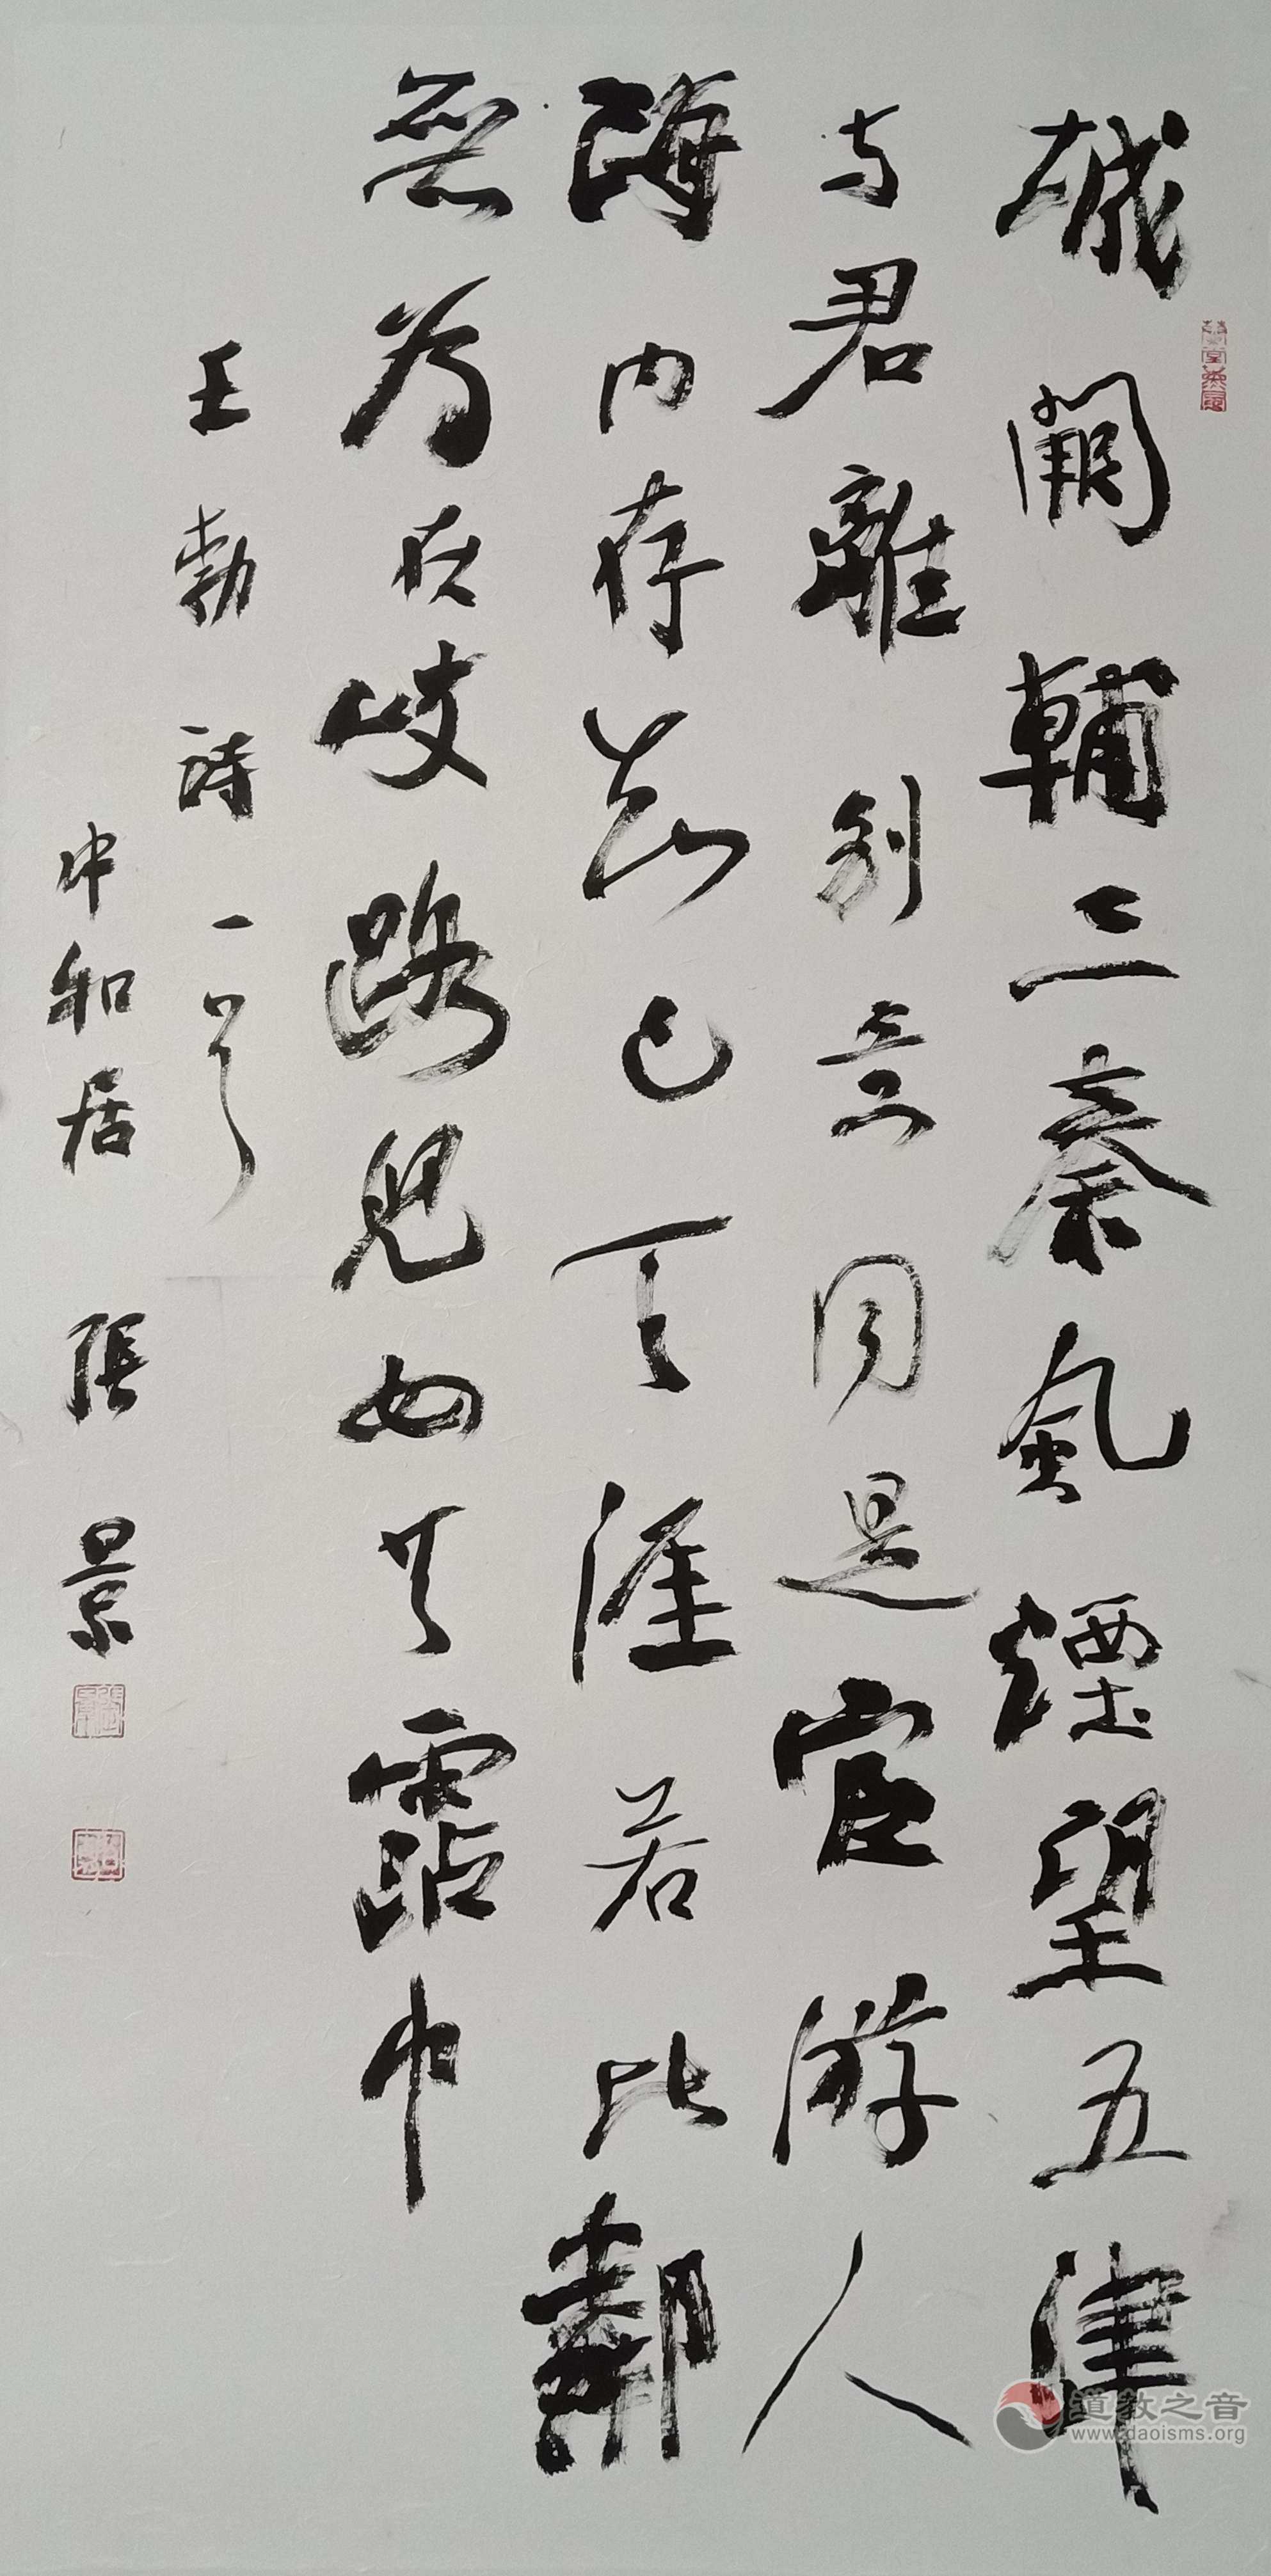 城闕輔三秦風煙望五津
与君離別意同是宦游人
海内存知己天涯若比鄰
無為在岐路兒女共霑巾
王勃詩一首
中和居 張景
道教之音
www.daoisms.org